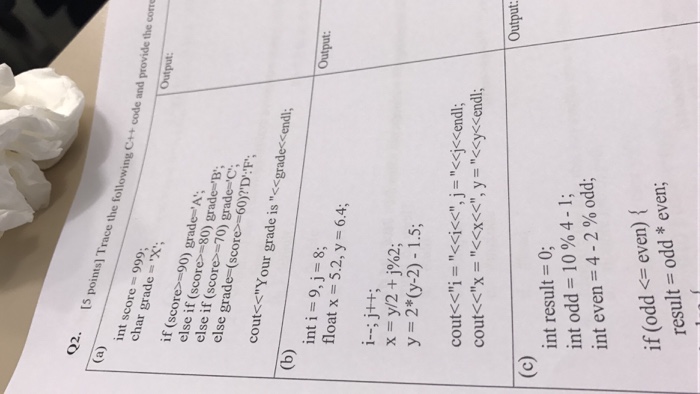 Q2. [5 points] Trace the following C++ code and provide the
(a)
int score = 999;
char grade = 'X';
if (score>=90) grade='A';
else if (score>=80) grade='B';
else if (score>=70) grade='C';
else grade=(score>=60)?'D':'F';
cout<<"Your grade is "<<grade<<endl;
Output:
(b)
int i = 9, j = 8;
float x = 5.2, y = 6.4;
i--; j++;
x = y/2 + j%2;
y = 2*(y-2) - 1.5;
cout<<"i = "<<i<<", j = "<<j<<endl;
cout<<"x = "<<x<<", y = "<<y<<endl;
Output:
(c)
int result = 0;
int odd = 10 % 4 - 1;
int even = 4 - 2 % odd;
if (odd <= even) {
result = odd * even;
Output: